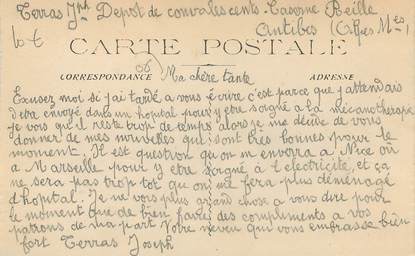 Terras Jph Depot de convalescents. Caserne Reille
Antibes (Alpes Mes)
CARTE POSTALE
CORRESPONDANCE
ADRESSE
Ma chère tante
Excusez moi si j'ai tardé a vous écrire c'est parce que j'attendais
d'etre envoyé dans un hopital pour y etre soigné a la mécanothérapie
je vois qu'il reste trop de temps alors je me décide de vous
donner de mes nouvelles qui sont très bonnes pour le
moment. Il est question qu'on m'enverra a Nice ou
a Marseille pour y etre soigné a l'electricité, et ça
ne sera pas trop tot que on me fera plus déménagé
d'hopital. Je ne vois plus grand chose a vous dire pour
le moment que de bien faires des compliments a vos
patrons de ma part Votre neveu qui vous embrasse bien
fort Terras Joseph